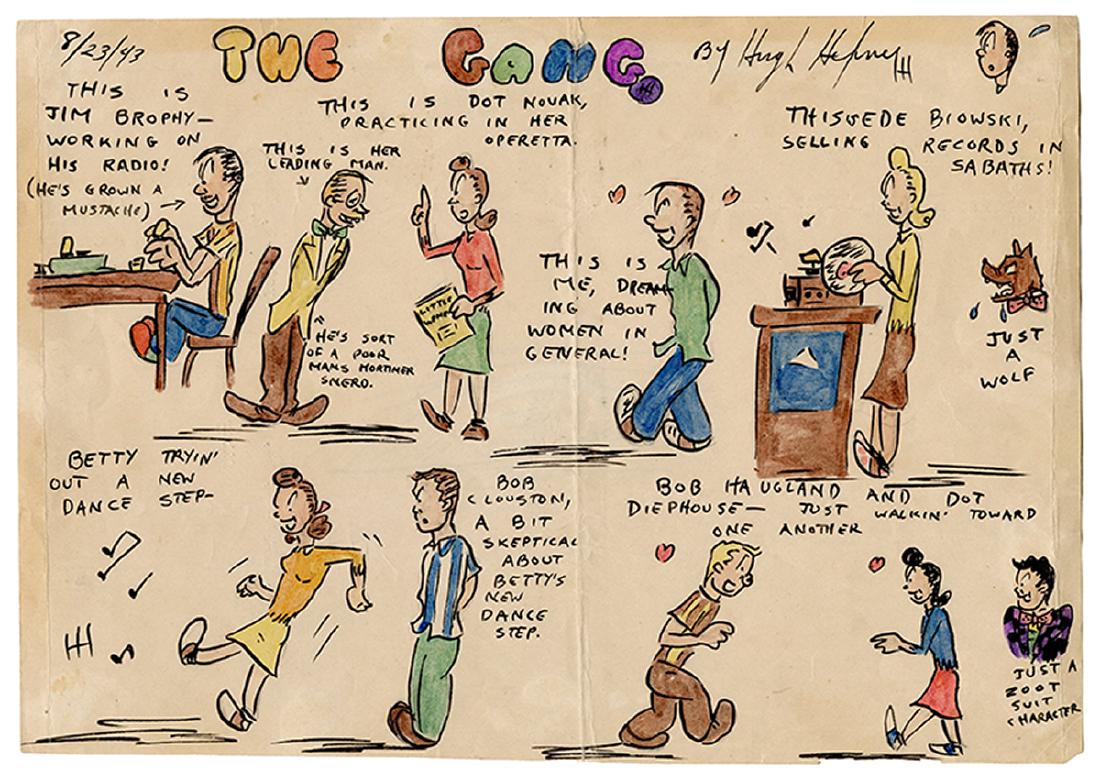 8/23/43
THE GANG
BY Hugh Hefner HH
THIS IS
JIM BROPHY—
WORKING ON
HIS RADIO!
(HE'S GROWN A
MUSTACHE) →
THIS IS DOT NOVAK,
PRACTICING IN HER
OPERETTA.
THIS IS HER
LEADING MAN.
HE'S SORT
OF A POOR
MANS MORTIMER
SNERD.
LITTLE
WOMEN
THIS IS
ME, DREAM
ING ABOUT
WOMEN IN
GENERAL!
THISWEDE BIOWSKI,
SELLING RECORDS IN
SABATHS!
JUST
A
WOLF
BETTY TRYIN'
OUT A NEW
DANCE STEP—
HH
BOB
CLOUSTON,
A BIT
SKEPTICAL
ABOUT
BETTY'S
NEW
DANCE
STEP.
BOB HAUGLAND AND DOT
DIEPHOUSE— JUST WALKIN' TOWARD
ONE ANOTHER
JUST A
ZOOT
SUIT
CHARACTER